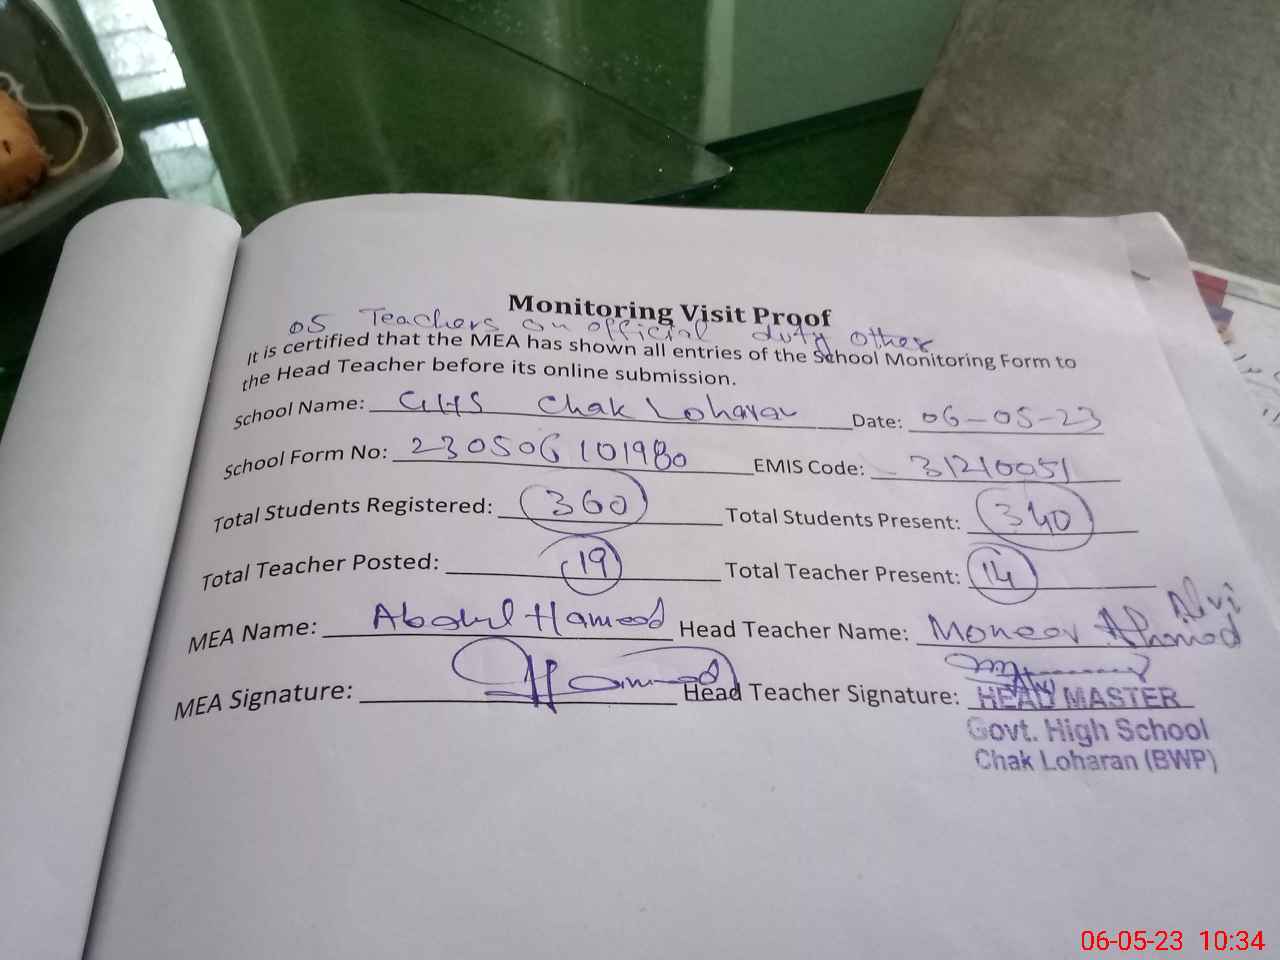 Monitoring Visit Proof
05 Teachers on official duty other
It is certified that the MEA has shown all entries of the School Monitoring Form to
the Head Teacher before its online submission.
School Name: GHS Chak Loharan Date: 06-05-23
School Form No: 230506101980 EMIS Code: 31210051
Total Students Registered: 360 Total Students Present: 340
Total Teacher Posted: 19 Total Teacher Present: 14
MEA Name: Abdul Hameed Head Teacher Name: Moneer Ahmad Alvi
MEA Signature: Hameed Head Teacher Signature:
HEAD MASTER
Govt. High School
Chak Loharan (BWP)
06-05-23 10:34